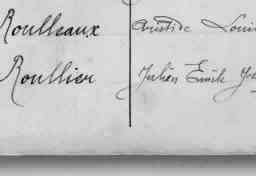 Roulleaux Aristide Loui
Roullier Julien Emile Jos